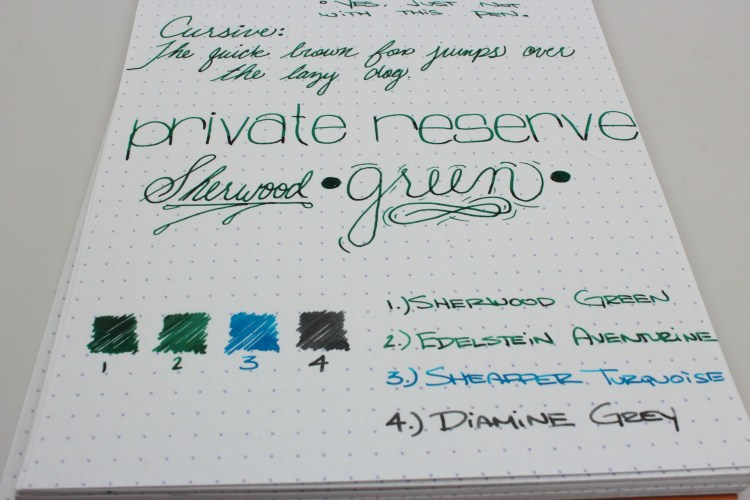 • Yes, just not
with this pen.
Cursive:
The quick brown fox jumps over
the lazy dog.
private reserve
Sherwood • green •
1 2 3 4
1.) Sherwood Green
2.) Edelstein Aventurine
3.) Sheaffer Turquoise
4.) Diamine Grey